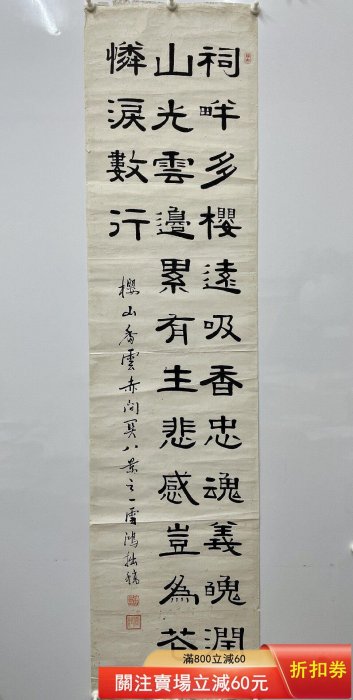 祠畔多櫻遠吸香忠魂義魄潤
山光雲邊累有主悲感豈為花
憐淚數行
櫻山香雲赤間関八景之一雪鴻拙稿
滿800立減60
關注賣場立減60元
折扣券